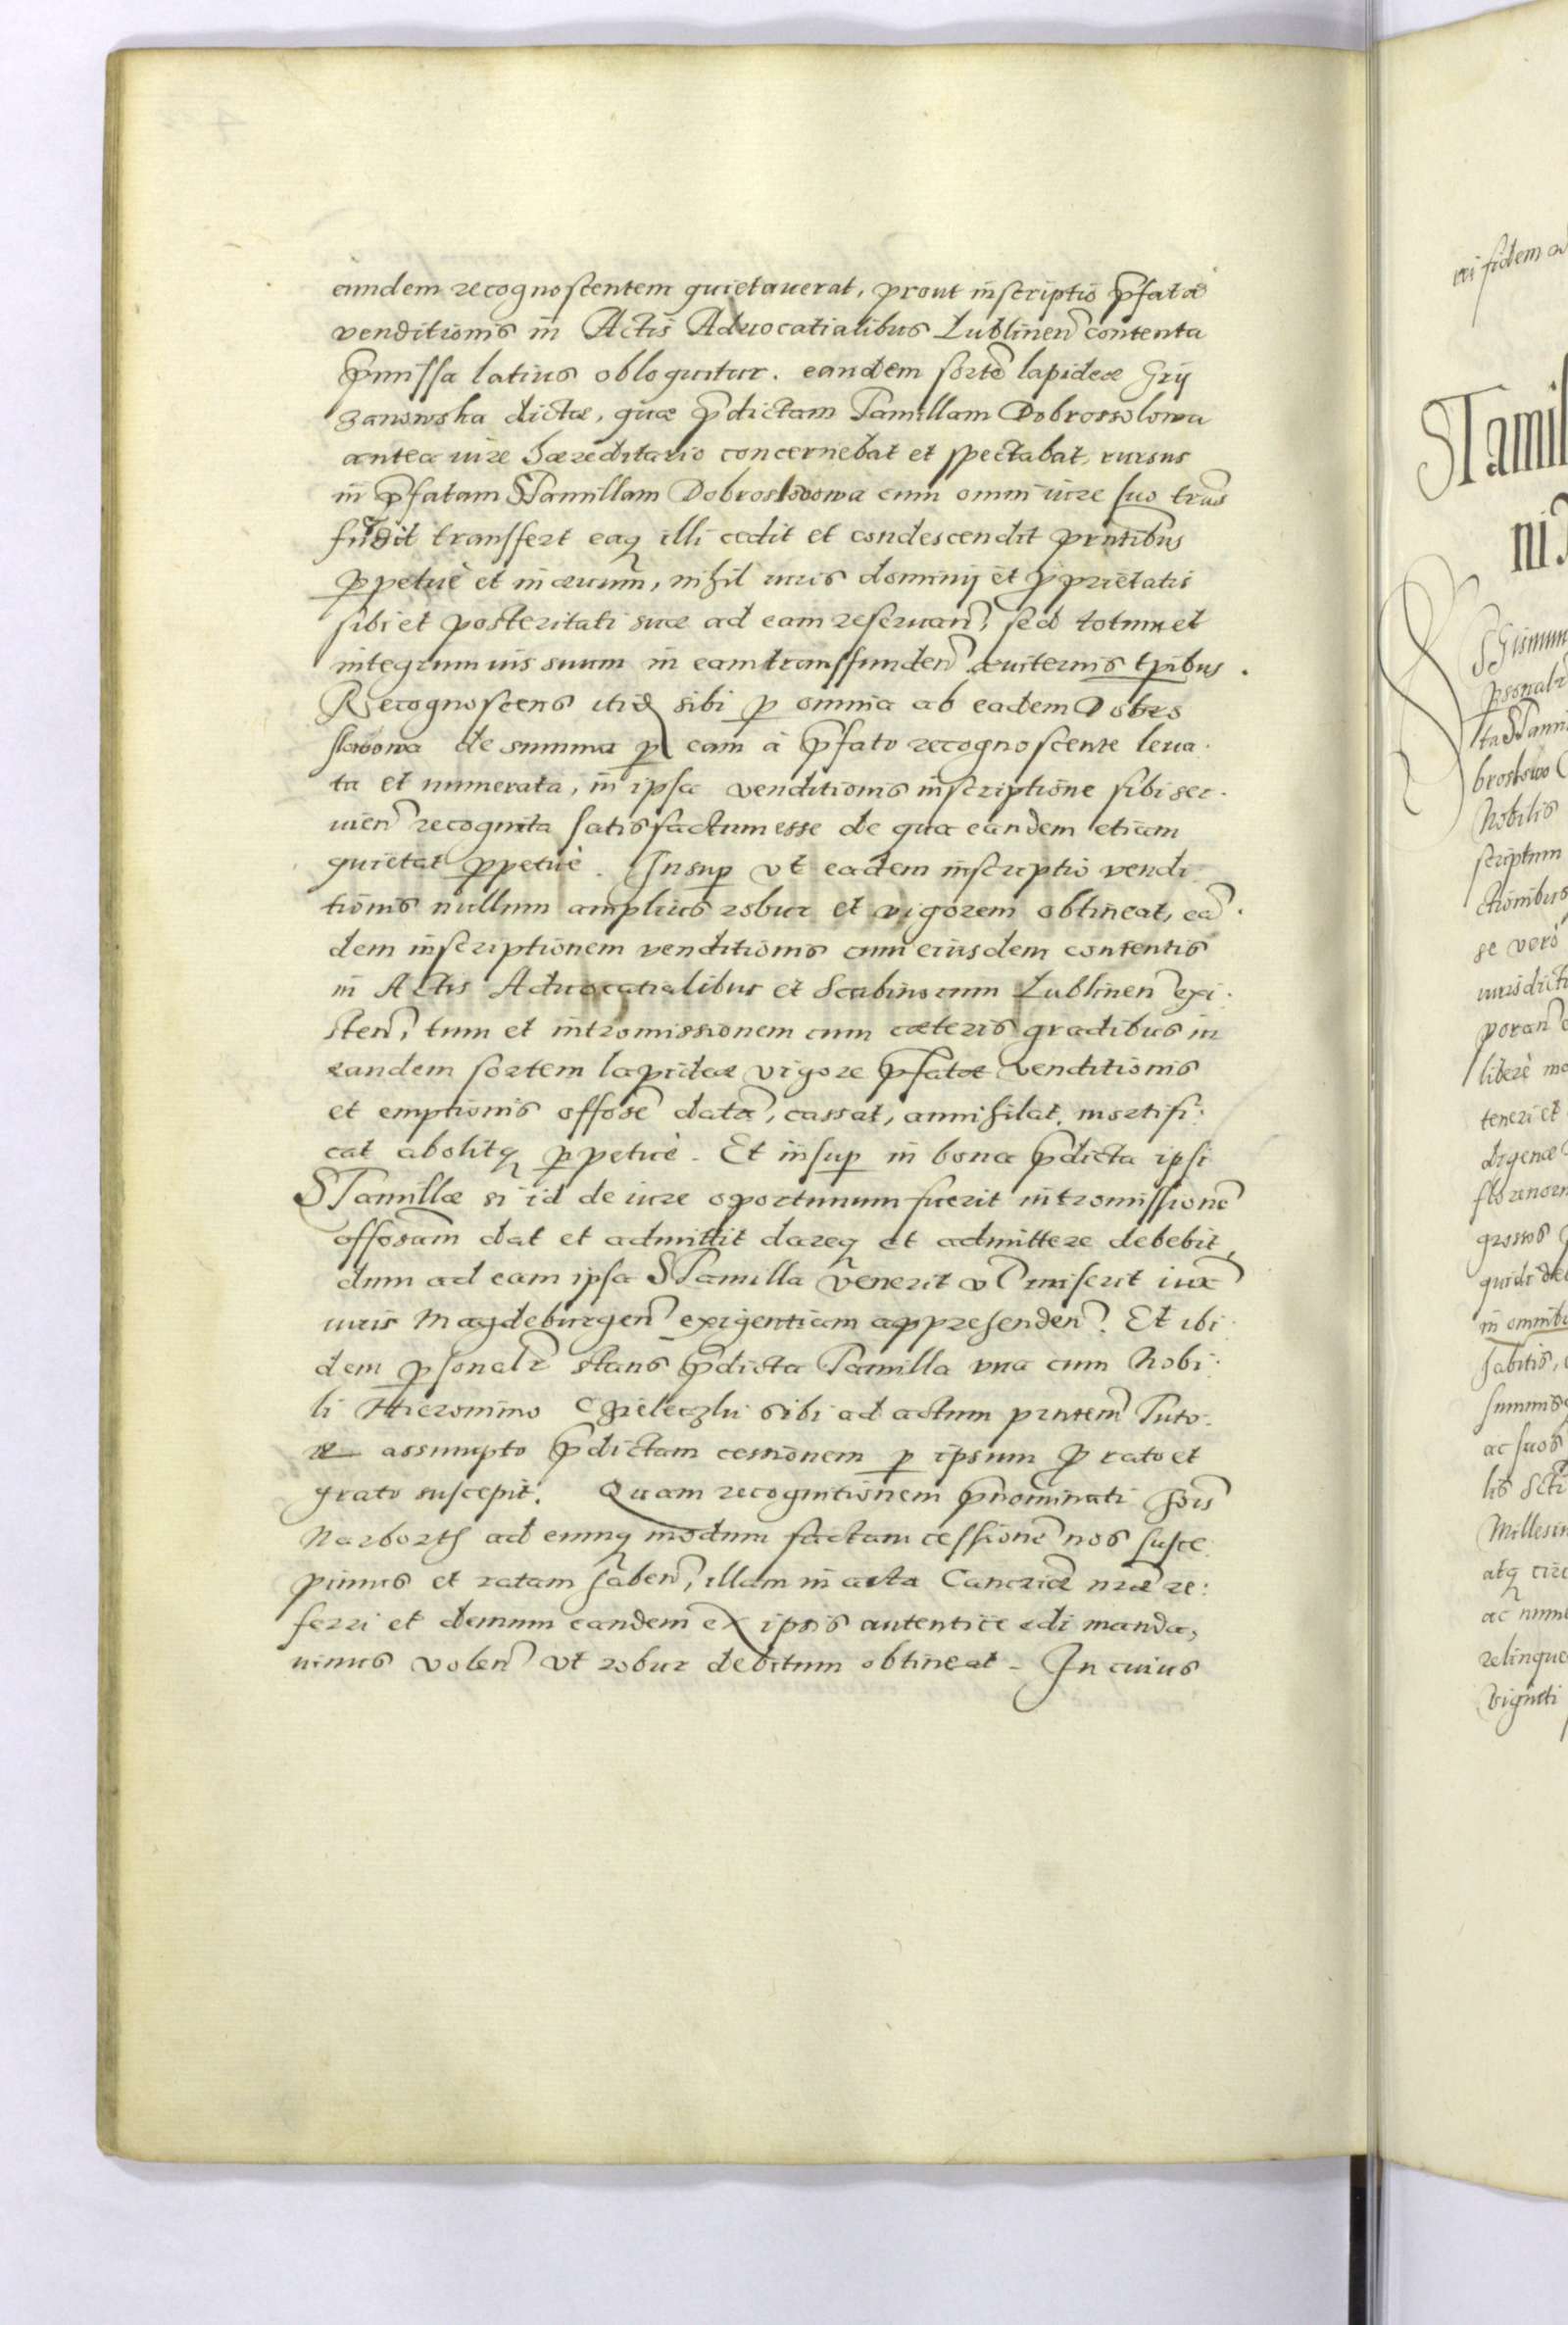 eundem recognoscentem quietauerat, prout inscriptio p̄fatæ
venditionis in Actis Aduocatialibus Lublinen̄ contenta
p̄missa latius obloquitur. eandem sortē lapideæ Grÿ
zanowska dictæ, quæ p̄dictam Tamillam Dobrossolowa
antea iure hæreditario concernebat et spectabat, rursus
in p̄fatam STamillam Dobroslowowa cum omni iure suo trans
fudit transfert eaq illi cedit et condescendit p̄ntibus
ꝑpetuè et in æuum, nihil iuris dominij et ꝓprietatis
sibi et posteritati suæ ad eam reseruan̄, sed totum et
integrum ius suum in eam transfunden̄ æuiternis tp̄ibus.
Recognoscens itid sibi ꝑ omnia ab eadem Dobro
slowowa de summa ꝑ eam à p̄fato recognoscente leua.
ta et numerata, in ipsa venditionis inscriptione sibi ser.
uien̄ recognita satisfactum esse de qua eandem etiam
quietat ꝑpetuè. Insuꝑ vt eadem inscriptio vendi
tionis nullum amplius robur et vigorem obtineat, eā.
dem inscriptionem venditionis cum eiusdem contentis
in Actis Aduocatialibus et Scabinorum Lublinen̄ exi.
sten̄, tum et intromissionem cum cæteris gradibus in
eandem sortem lapideæ vigore p̄fatæ venditionis
et emptionis offōsē datā, cassat, annihilat, mortifi:
cat abolitq ꝑpetuè. Et insuꝑ in bona p̄dicta ipsi
STamillæ si id de iure oportunum fuerit intromissionē
offōsam dat et admittit dareq et admittere debebit,
dum ad eam ipsa STamilla venerit vl miserit iuxā
iuris Magdeburgen̄ exigentiam apprehenden̄. Et ibi.
dem ꝑsonalr̄ stans p̄dicta Tamilla vna cum Nobi.
li Hieronimo Chieleczki sibi ad actum p̄ntem Tuto.
re assumpto p̄dictam cessionem ꝑ ipsum ꝓ rato et
grato suscepit. Quam recognitionem p̄nominati Gn̄is
Narborth ad eumq modum factam cessionē nos susce.
pimus et ratam haben̄, illam in acta Cancriæ nr̄æ re:
ferri et demum eandem ex ipsis autenticè edi manda,
uimus volen̄ vt robur debitum obtineat. In cuius
rei fidem
STamil
ni
SGismun
ꝑsonalr̄
ta STami
broslowo
Nobilis
scriptum
ctionibus
se verò
iurisdicti
poran̄
liberè mo
teneri et
digenæ
florenor
grossos
quidē de
in omnib
habitis,
summis
ac suos
Millesi
atq circ
ac nume
relinque
viginti